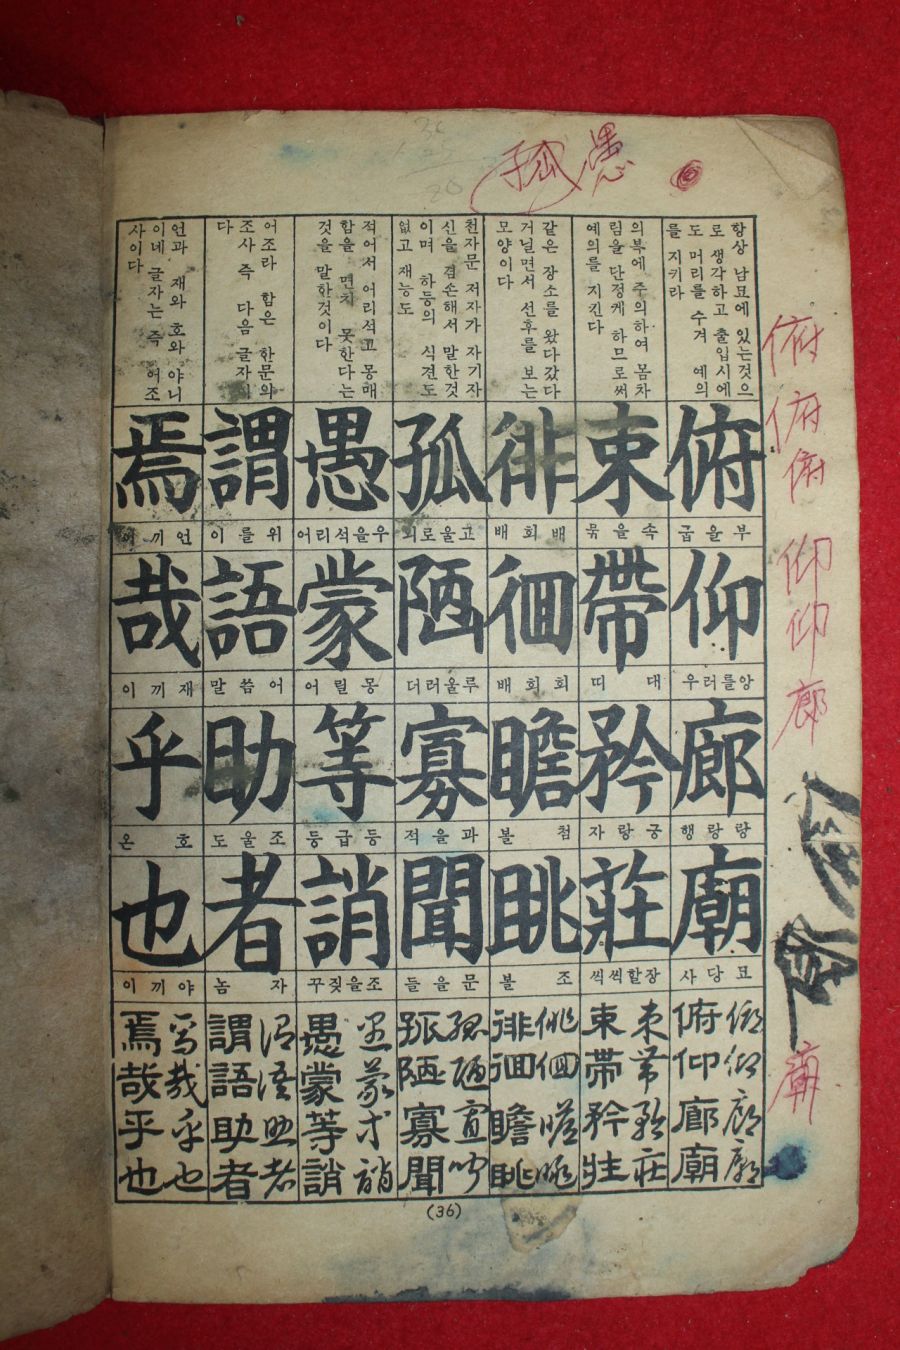 孤 愚
항상 남묘에 있는것으
로 생각하고 출입시에
도 머리를 수겨 예의
를 지키라
의복에 주의하여 몸차
림을 단정케 하므로써
예의를 지킨다
같은 장소를 왔다갔다
거닐면서 선후를 보는
모양이다
천자문 저자가 자기자
신을 겸손해서 말한것
이며 하등의 식견도
없고 재능도
적어서 어리석고 몽매
함을 면치 못한다는
것을 말한것이다
어조라 함은 한문의
조사 즉 다음 글자이
다
언과 재와 호와 야니
이네 글자는 즉 어조
사이다
俯 仰 廊 廟
굽을부 우러를앙 행랑랑 사당묘
束 帶 矜 莊
묶을속 띠대 자랑긍 씩씩할장
徘 徊 瞻 眺
배회배 배회회 볼첨 볼조
孤 陋 寡 聞
외로울고 더러울루 적을과 들을문
愚 蒙 等 誚
어리석을우 어릴몽 등급등 꾸짖을조
謂 語 助 者
이를위 말씀어 도울조 놈자
焉 哉 乎 也
이끼언 이끼재 온호 이끼야
俯仰廊廟
俯仰廊廟
束帶矜莊
束帶矜莊
徘徊瞻眺
徘徊瞻眺
孤陋寡聞
孤陋寡聞
愚蒙等誚
愚蒙等誚
謂語助者
謂語助者
焉哉乎也
焉哉乎也
俯
俯
俯
仰
仰
廊
廟
(36)